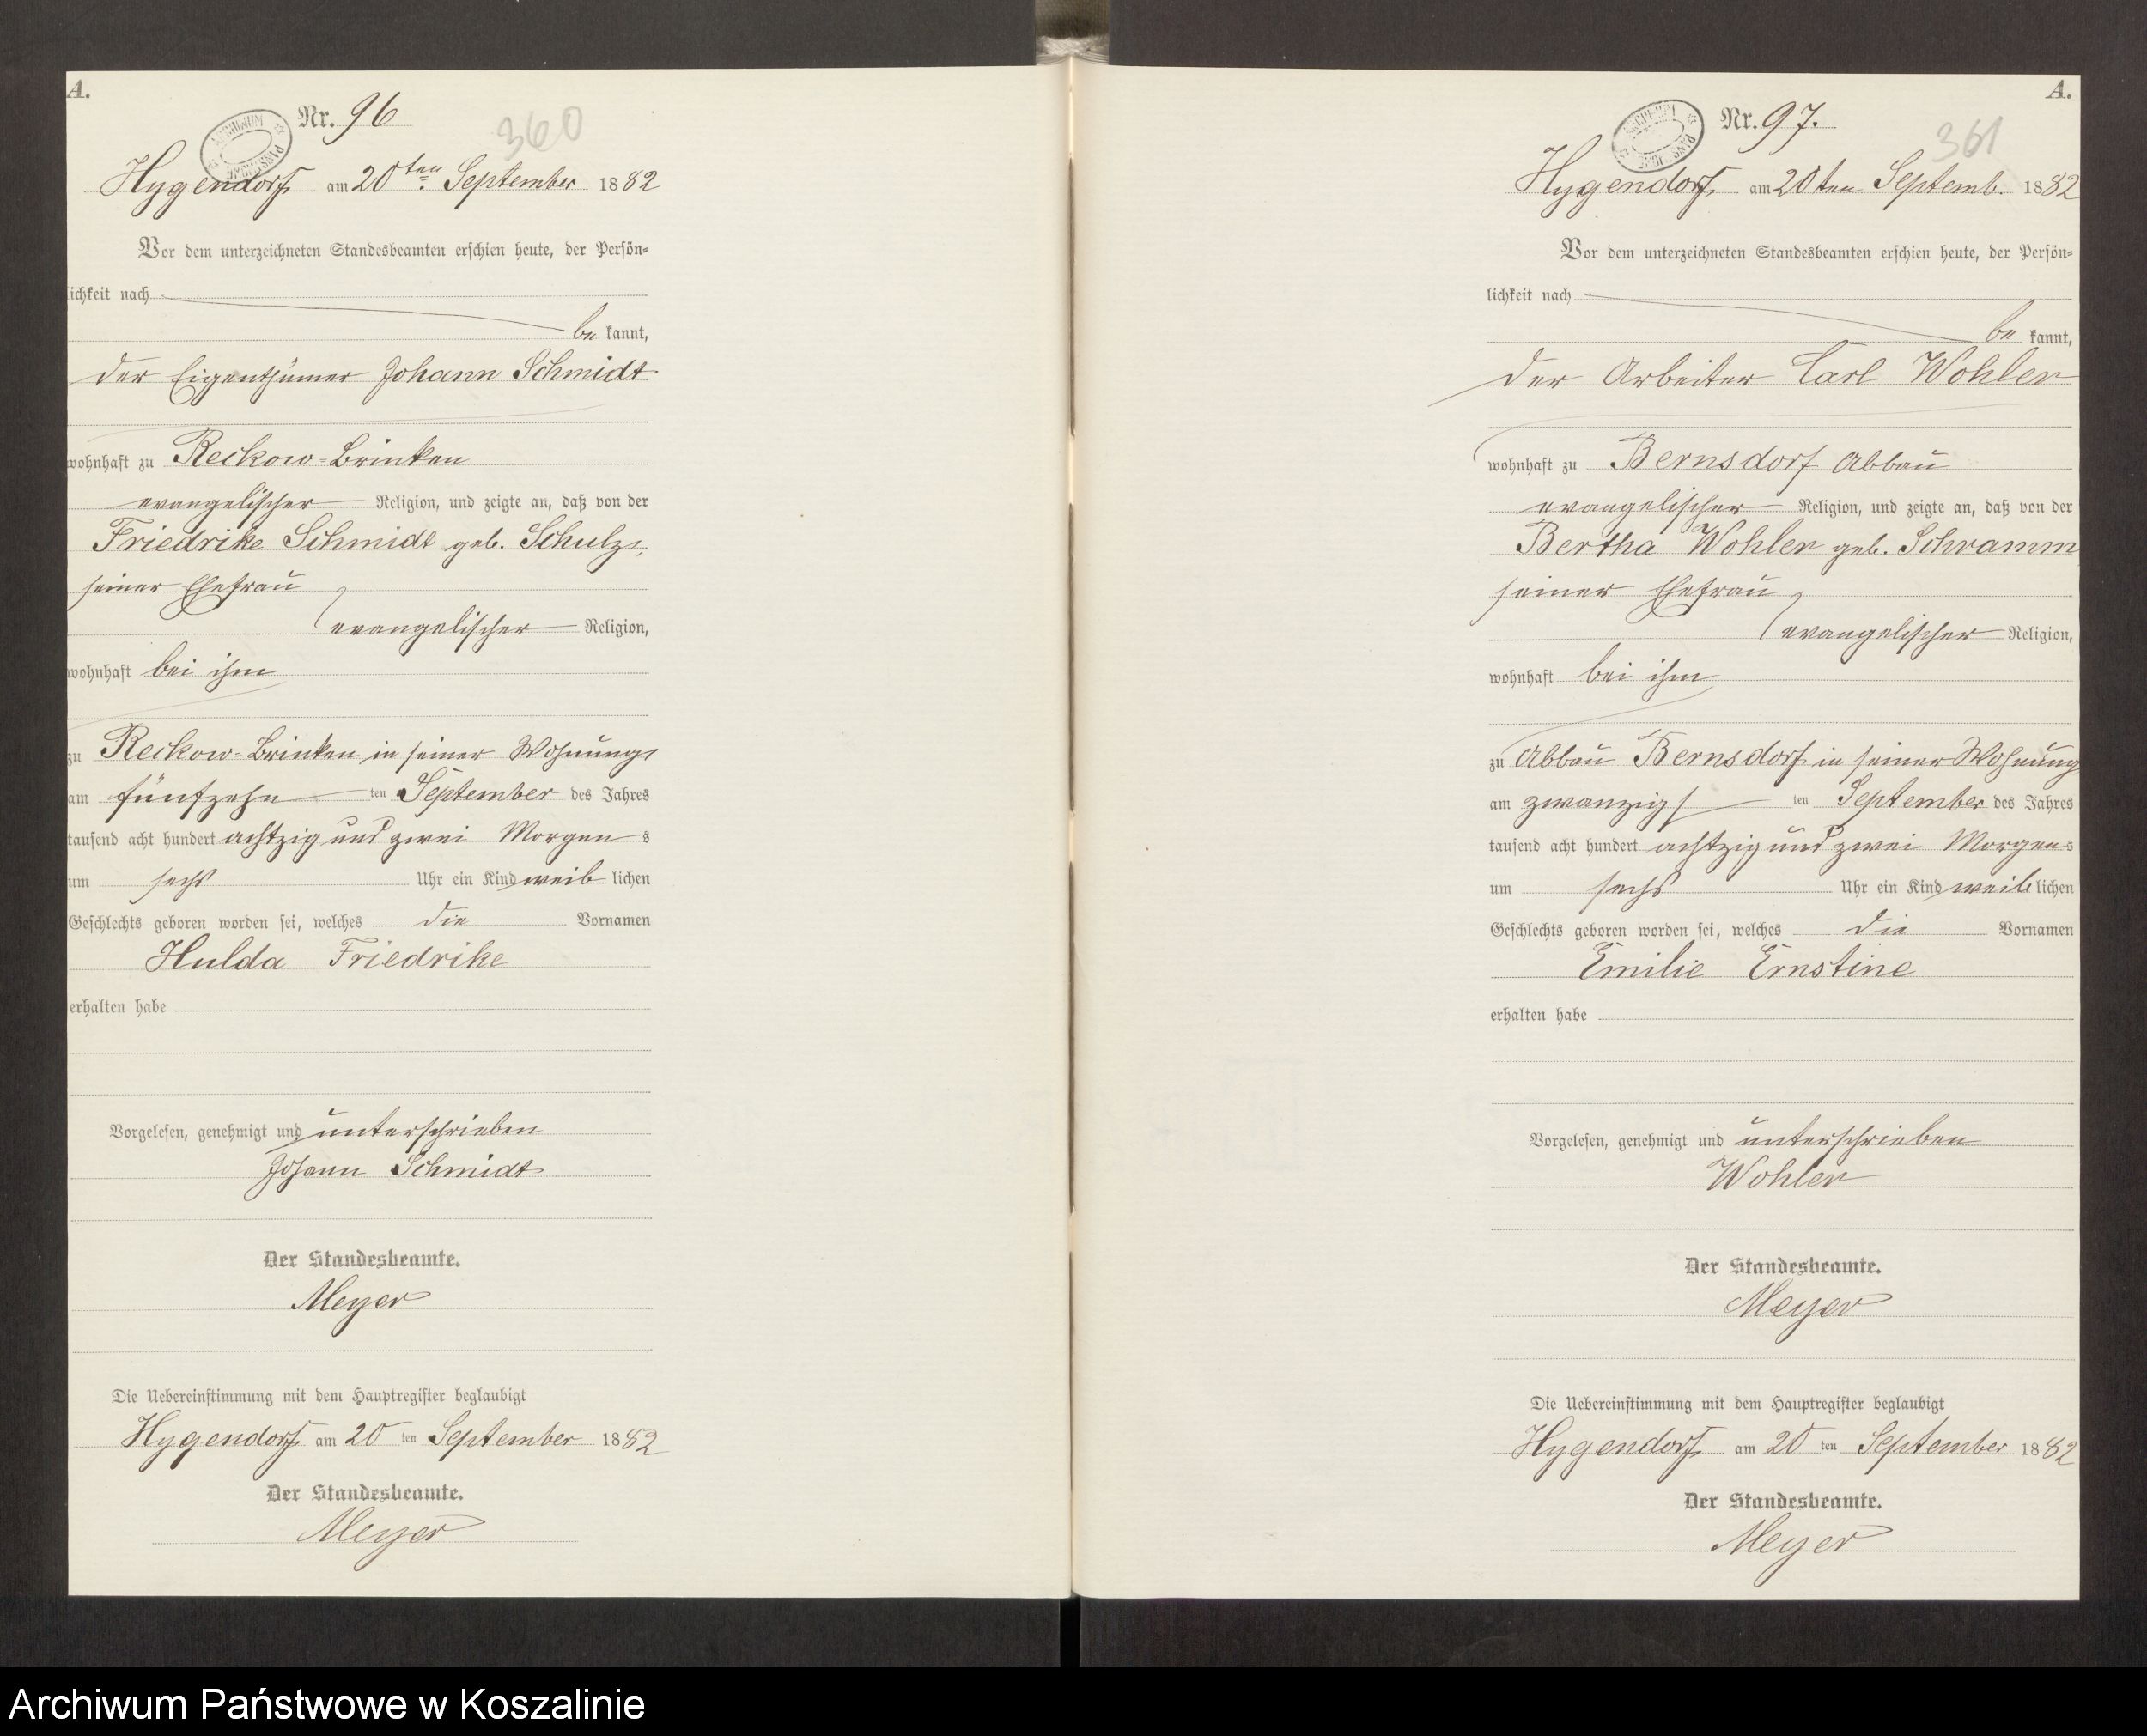 A.
Nr. 96
360
Hygendorf am 20ten September 1882
Vor dem unterzeichneten Standesbeamten erschien heute, der Persön-
lichkeit nach
be kannt,
der Eigenthümer Johann Schmidt
wohnhaft zu Reckow-Brinken
evangelischer Religion, und zeigte an, daß von der
Friedrike Schmidt geb. Schulz,
seiner Ehefrau
evangelischer Religion,
wohnhaft bei ihm
zu Reckow-Brinken in seiner Wohnung,
am fünfzehn ten September des Jahres
tausend acht hundert achtzig und zwei Morgen s
um sechs Uhr ein Kind weib lichen
Geschlechts geboren worden sei, welches die Vornamen
Hulda Friedrike
erhalten habe
Vorgelesen, genehmigt und unterschrieben
Johann Schmidt
Der Standesbeamte.
Meyer
Die Uebereinstimmung mit dem Hauptregister beglaubigt
Hygendorf am 20 ten September 1882
Der Standesbeamte.
Meyer
A.
Nr. 97.
361
Hygendorf am 20ten Septemb. 1882
Vor dem unterzeichneten Standesbeamten erschien heute, der Persön-
lichkeit nach
be kannt,
der Arbeiter Carl Wohler
wohnhaft zu Bernsdorf Abbau
evangelischer Religion, und zeigte an, daß von der
Bertha Wohler geb. Schramm
seiner Ehefrau,
evangelischer Religion,
wohnhaft bei ihm
zu Abbau Bernsdorf in seiner Wohnung
am zwanzigs ten September des Jahres
tausend acht hundert achtzig und zwei Morgens
um sechs Uhr ein Kind weib lichen
Geschlechts geboren worden sei, welches die Vornamen
Emilie Ernstine
erhalten habe
Vorgelesen, genehmigt und unterschrieben
Wohler
Der Standesbeamte.
Meyer
Die Uebereinstimmung mit dem Hauptregister beglaubigt
Hygendorf am 20 ten September 1882
Der Standesbeamte.
Meyer
Archiwum Państwowe w Koszalinie